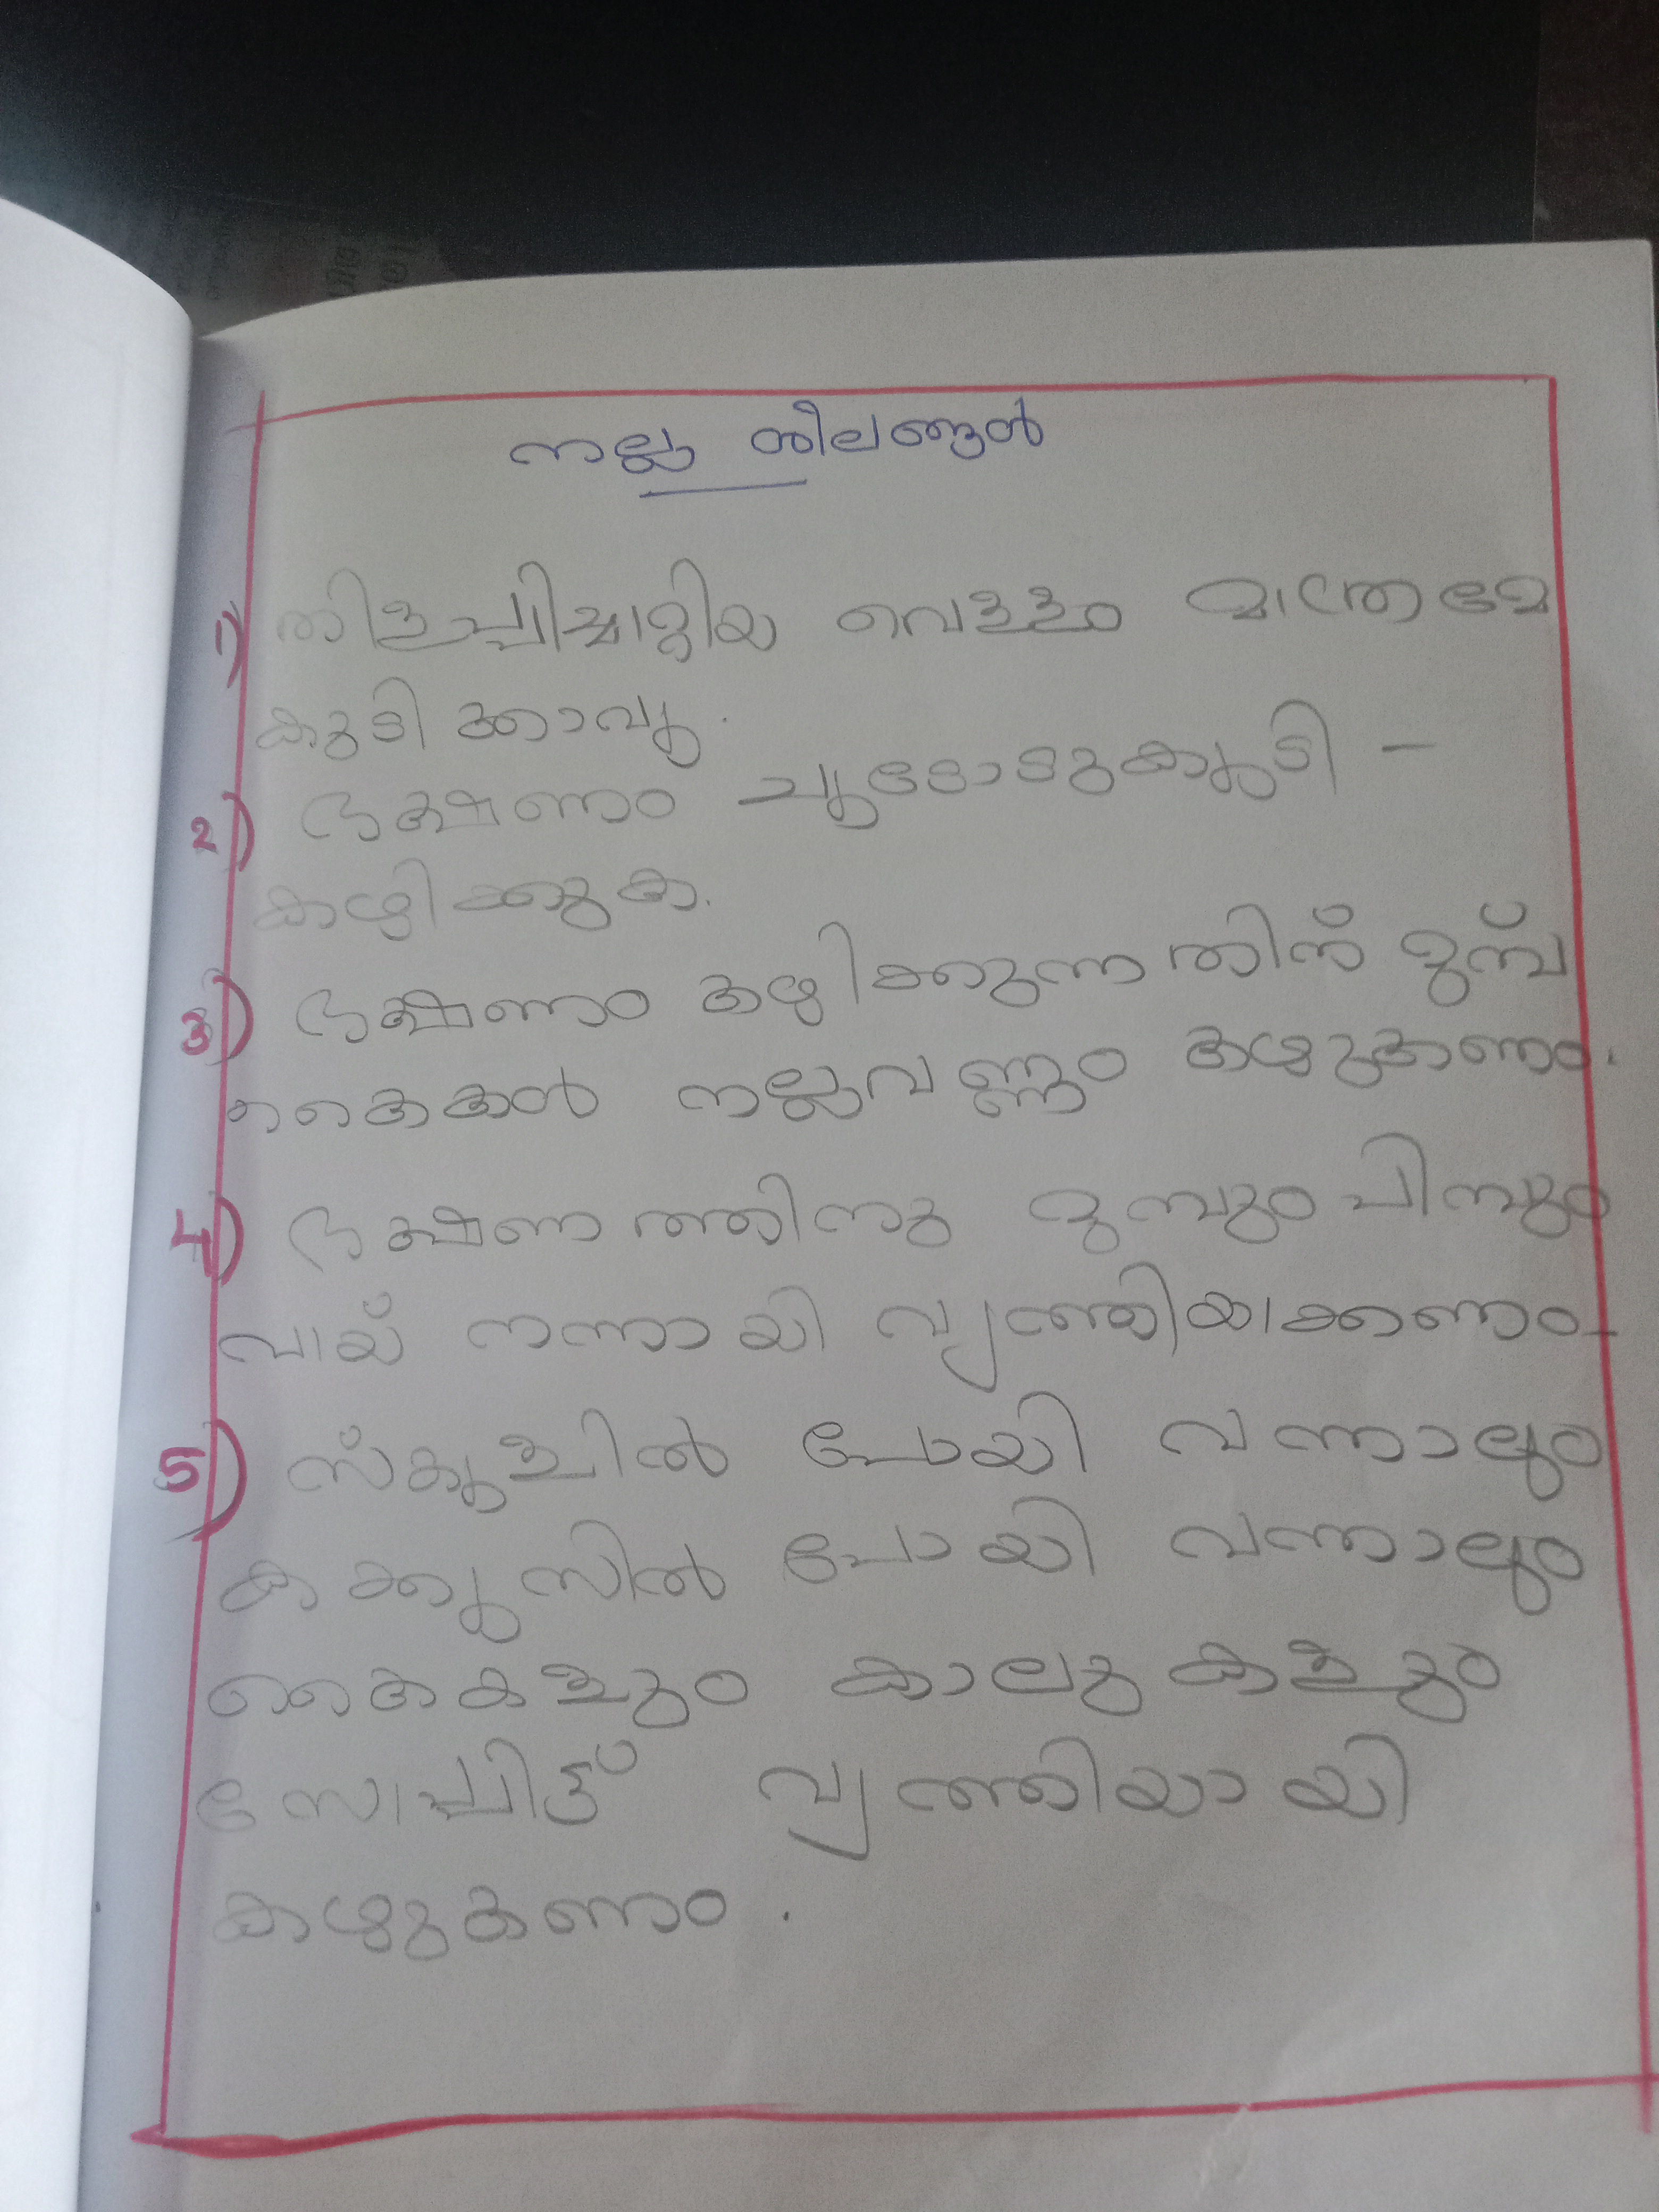 നല്ല ശീലങ്ങൾ
1) തിളപ്പിച്ചാറ്റിയ വെള്ളം മാത്രമേ
കുടിക്കാവൂ.
2) ഭക്ഷണം ചൂടോടുകൂടി -
കഴിക്കുക.
3) ഭക്ഷണം കഴിക്കുന്നതിന് മുമ്പ്
കൈകൾ നല്ലവണ്ണം കഴുകണം.
4) ഭക്ഷണത്തിനു മുമ്പും പിമ്പും
വായ് നന്നായി വൃത്തിയാക്കണം
5) സ്കൂളിൽ പോയി വന്നാലും
കക്കൂസിൽ പോയി വന്നാലും
കൈകളും കാലുകളും
സോപ്പിട്ട് വൃത്തിയായി
കഴുകണം.